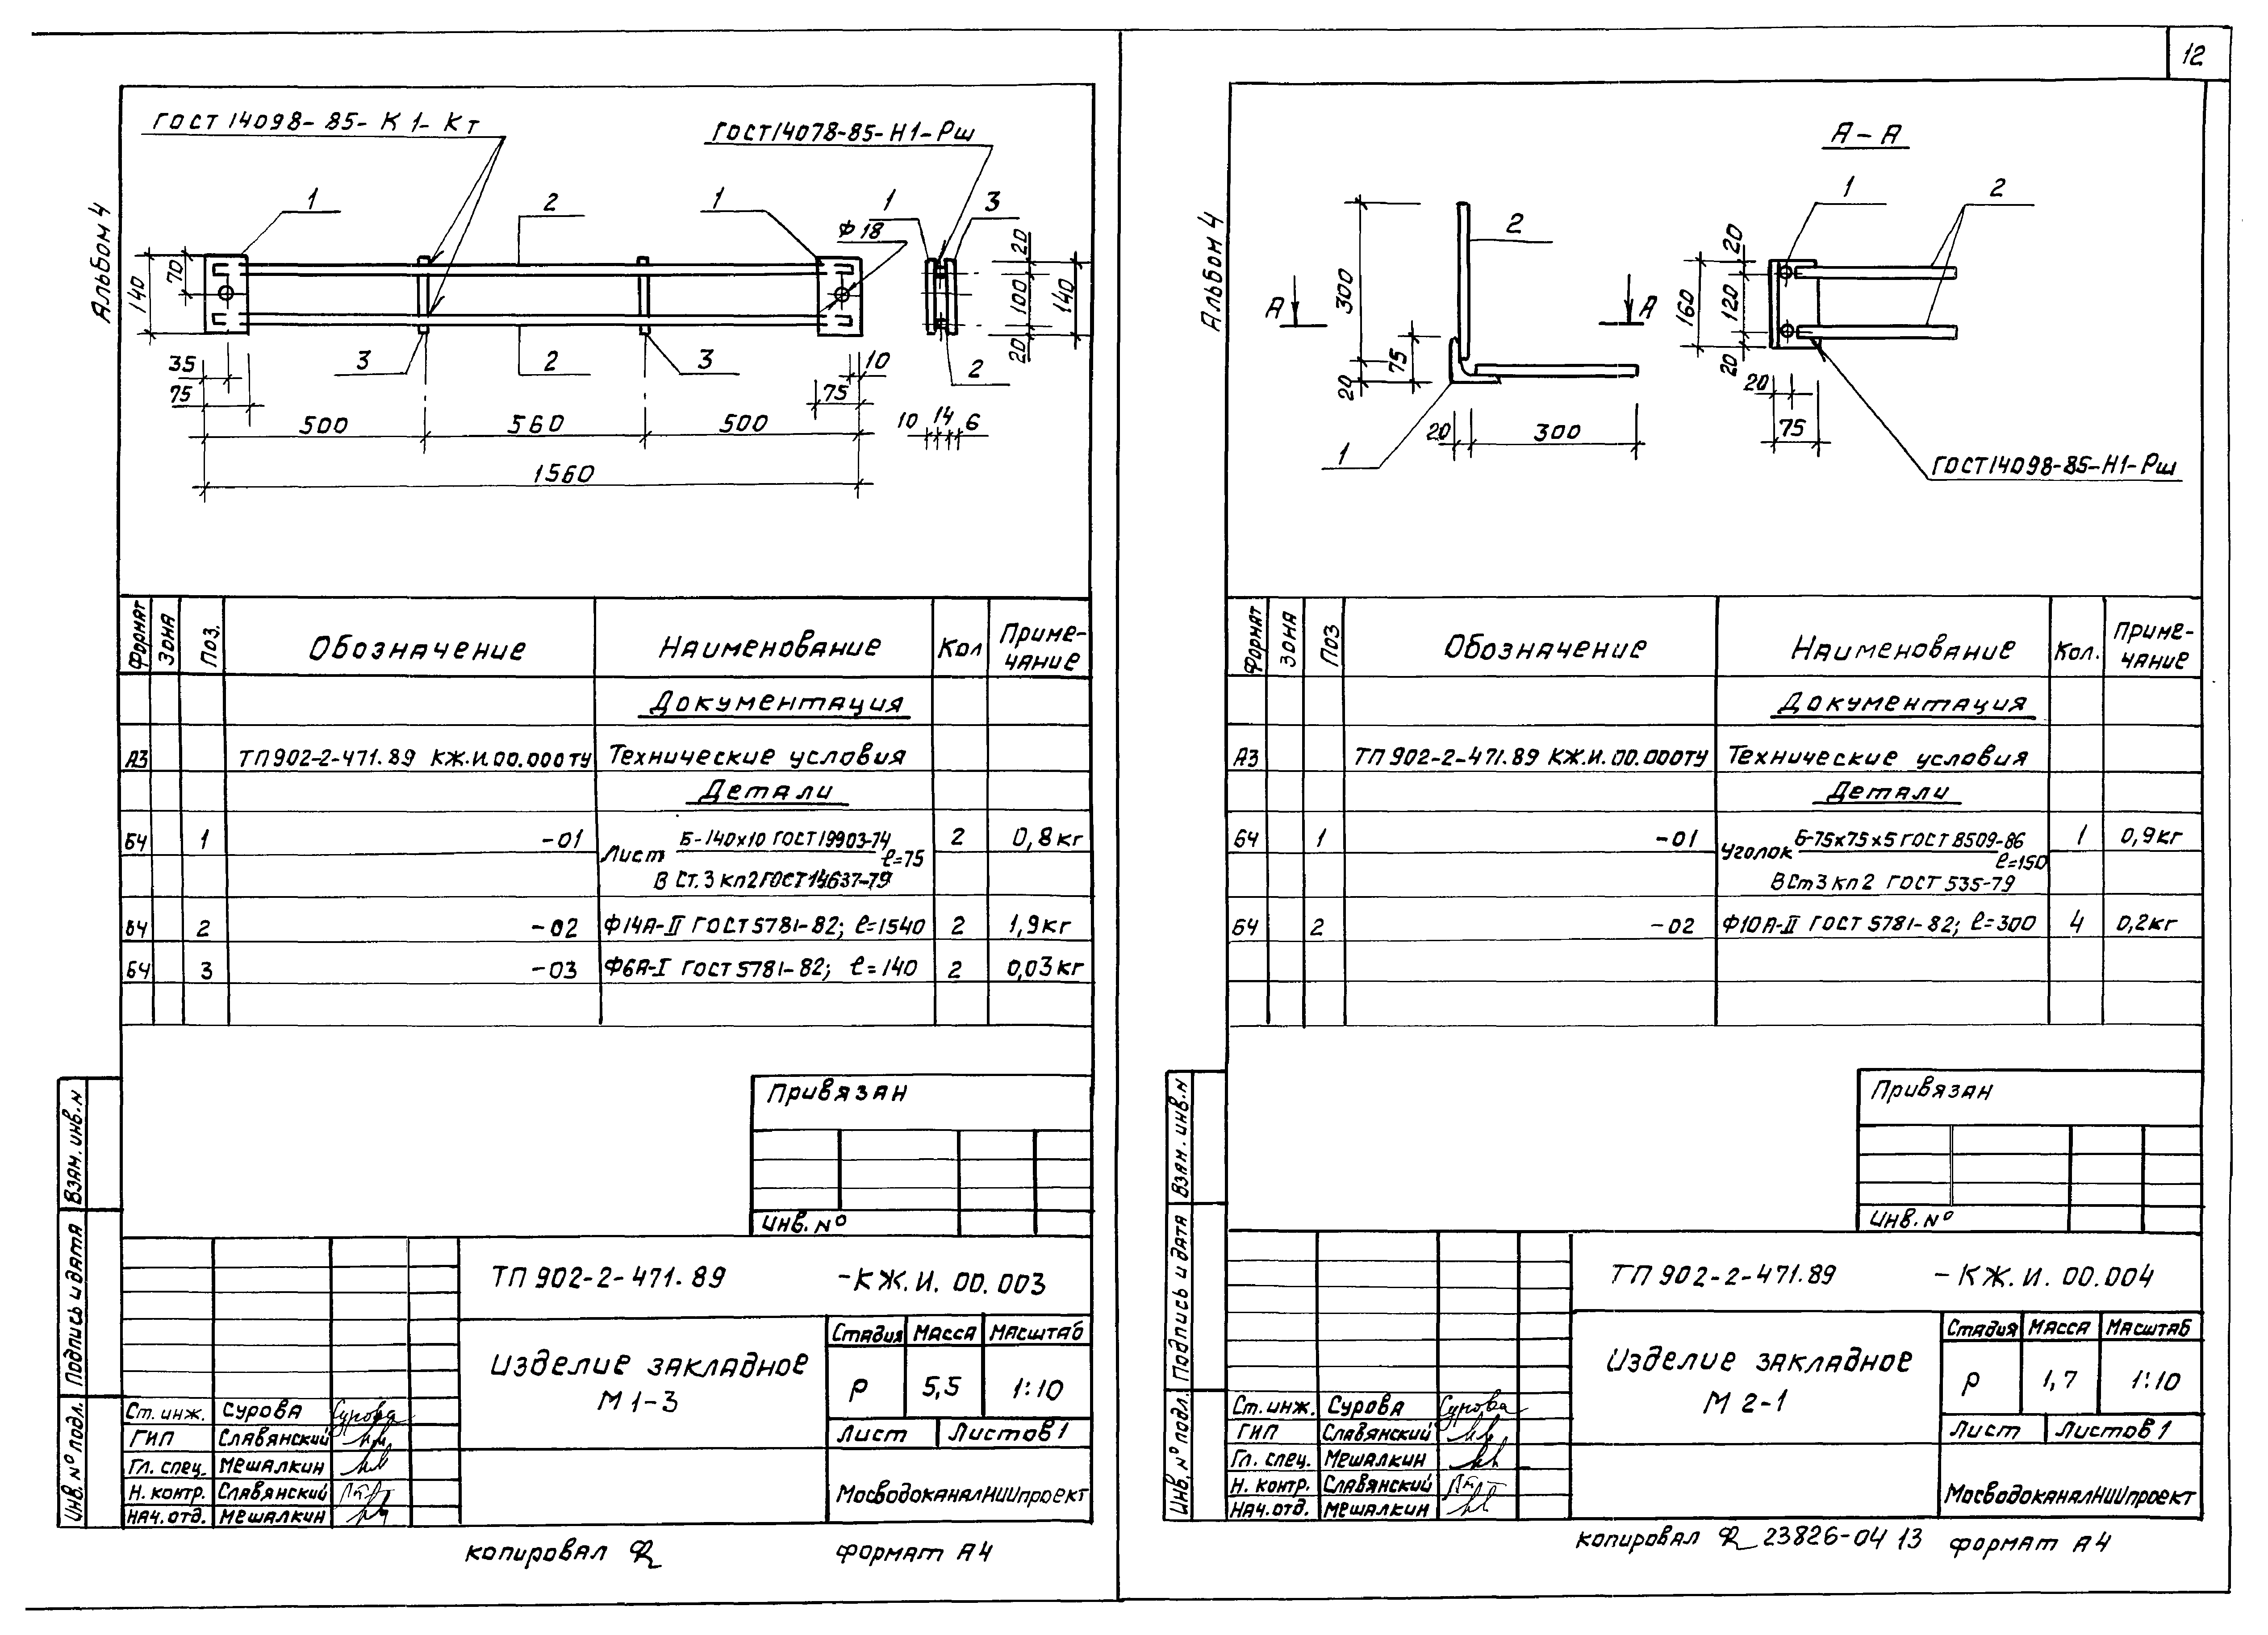 12
Альбом 4
ГОСТ 14098-85-К1-Кт
ГОСТ14078-85-Н1-Рш
1
2
1
1
3
Ф18
140
70
20
100
140
20
3
2
3
2
35
75
10
75
500
560
500
10 14 6
1560
Формат Зона Поз. Обозначение Наименование Кол Приме-
чание
Документация
А3 ТП902-2-471.89 КЖ.И.00.000ТУ Технические условия
Детали
БЧ 1 -01 Лист Б-140х10 ГОСТ19903-74 ℓ=75 2 0,8кг
В Ст.3 кп2ГОСТ14637-79
БЧ 2 -02 Ф14А-II ГОСТ5781-82; ℓ=1540 2 1,9кг
БЧ 3 -03 Ф6А-I ГОСТ5781-82; ℓ=140 2 0,03кг
Привязан
Инв. №
Взам. инв. н
Подпись и дата
Инв. № подл.
ТП 902-2-471.89 -КЖ.И. 00.003
Изделие закладное
М 1-3
Стадия Масса Масштаб
Р 5,5 1:10
Лист Листов 1
МосводоканалНИИпроект
Ст. инж. Сурова Сурова
ГИП Славянский
Гл. спец. Мешалкин
Н. контр. Славянский
Нач. отд. Мешалкин
копировал
формат А4
Альбом 4
А-А
2
1
2
300
75
20
А А
20
160
120
20
20
75
20 300
1
ГОСТ14098-85-Н1-Рш
Формат Зона Поз Обозначение Наименование Кол. Приме-
чание
Документация
А3 ТП 902-2-471.89 КЖ.И.00.000ТУ Технические условия
Детали
БЧ 1 -01 Уголок Б-75х75х5 ГОСТ 8509-86 ℓ=150 1 0,9кг
ВСт3 кп2 ГОСТ 535-79
БЧ 2 -02 Ф10А-II ГОСТ 5781-82; ℓ=300 4 0,2кг
Привязан
Инв. №
Взам. инв. н
Подпись и дата
Инв. № подл.
ТП 902-2-471.89 -КЖ.И. 00.004
Изделие закладное
М 2-1
Стадия Масса Масштаб
Р 1,7 1:10
Лист Листов 1
МосводоканалНИИпроект
Ст. инж. Сурова Сурова
ГИП Славянский
Гл. спец. Мешалкин
Н. контр. Славянский
Нач. отд. Мешалкин
копировал 23826-04 13 формат А4